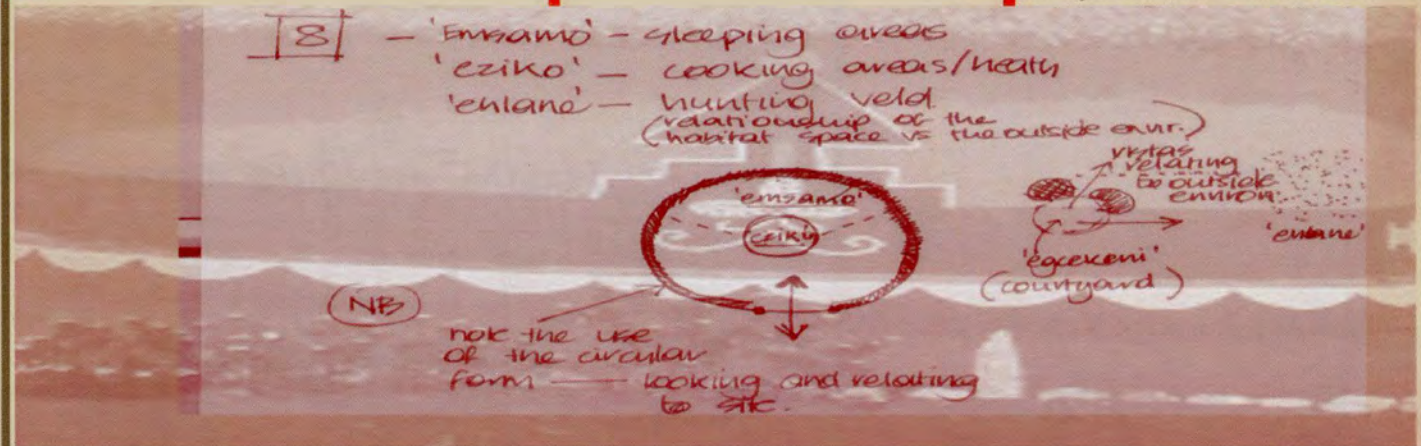 8 - 'Emsamo' - sleeping areas
'eziko' - cooking areas/heath
'enlane' - hunting veld
(relationship of the
habitat space vs the outside envir.)
vistas
relating
to outside
environ.
'emsamo'
eziko
'enlane'
'egcekeni'
(courtyard)
NB
note the use
of the circular
form — looking and relating
to site.